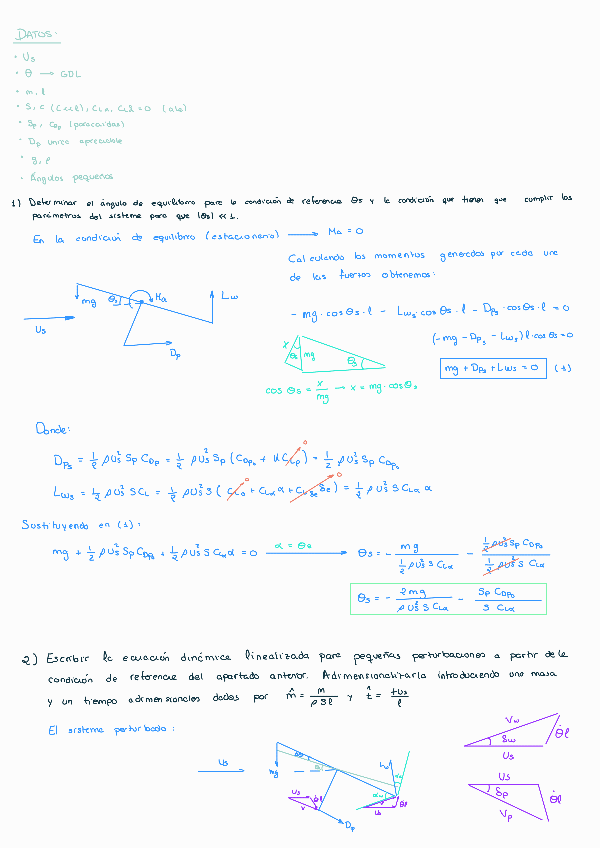 DATOS:
• Us
• θ → GDL
• m, l
• S, c (c<<l), CLα, CLδ = 0 (ala)
• Sp, CDp (paracaídas)
• Dp única apreciable
• g, ρ
• Ángulos pequeños
1) Determinar el ángulo de equilibrio para la condición de referencia θs y la condición que tienen que cumplir los
parámetros del sistema para que |θs| << 1.
En la condición de equilibrio (estacionario) → Ma = 0
Calculando los momentos generados por cada una
de las fuerzas obtenemos:
mg θs Ma Lw
Us
Dp
- mg · cos θs · l - Lws · cos θs · l - Dps · cos θs · l = 0
(-mg - Dps - Lws) l · cos θs = 0
x θs mg θs
mg + Dps + Lws = 0 (1)
cos θs = x/mg → x = mg · cos θs
Donde:
Dps = 1/2 ρ Us² Sp CDp = 1/2 ρ Us² Sp (CDp0 + K CLp) = 1/2 ρ Us² Sp CDp0
0
Lws = 1/2 ρ Us² S CL = 1/2 ρ Us² S (CL0 + CLα α + CLδe δe) = 1/2 ρ Us² S CLα α
0 0
Sustituyendo en (1):
mg + 1/2 ρ Us² Sp CDp0 + 1/2 ρ Us² S CLα α = 0 α = θs → θs = - mg / (1/2 ρ Us² S CLα) - (1/2 ρ Us² Sp CDp0) / (1/2 ρ Us² S CLα)
θs = - 2mg / (ρ Us² S CLα) - Sp CDp0 / (S CLα)
2) Escribir la ecuación dinámica linealizada para pequeñas perturbaciones a partir de la
condición de referencia del apartado anterior. Adimensionalizarla introduciendo una masa
y un tiempo adimensionales dados por m̂ = m / (ρ S l) y t̂ = t us / l
El sistema perturbado:
Us
mg
Us
V
Dp
Us
θ̇l
Vw
δw
θ̇l
Us
Us
δp
θ̇l
Vp